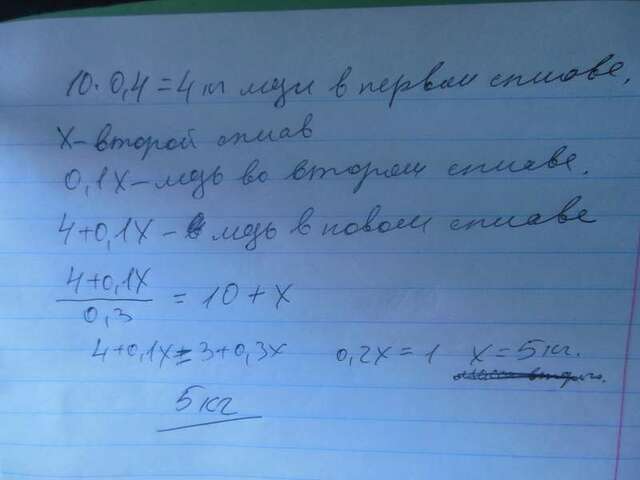 10 · 0,4 = 4 кг меди в первом сплаве.
х – второй сплав
0,1х – медь во втором сплаве.
4+0,1х – медь в новом сплаве
4+0,1х
0,3
= 10 + х
4+0,1х = 3+0,3х 0,2х = 1 х = 5 кг.
5 кг